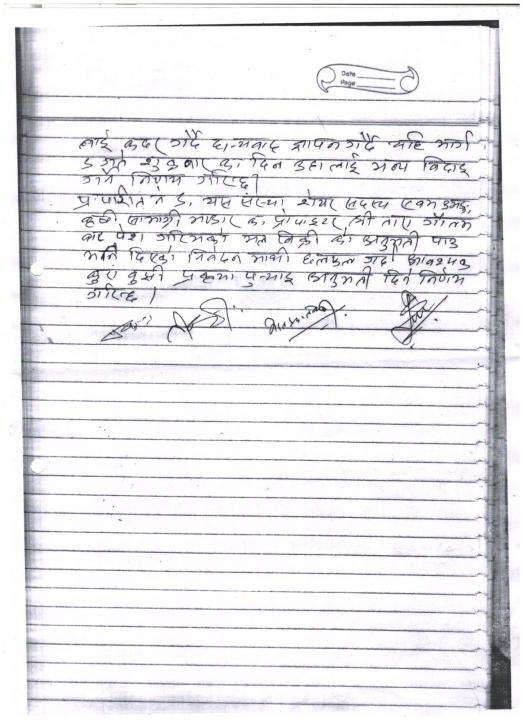 Date
Page
लाई कदर गर्दै धन्यवाद ज्ञापन गर्दै यहि मार्ग
५ गते शुक्रवार का दिन उहालाई भव्य विदाइ
गर्ने निर्णय गरियो।
प्र. पारित नं ५. यस संस्था शेयर सदस्य एवम
कृषी सामाग्री भण्डार का प्रोपाइटर श्री तारा गौतम
बाट पेश गरिएको मल बिक्री को अनुमती पाउ
भन्ने दिएको निवेदन माथी छलफल गर्दा आवश्यक
कुरा बुझी प्रकृया पुर्‍याइ अनुमती दिने निर्णय
गरियो।